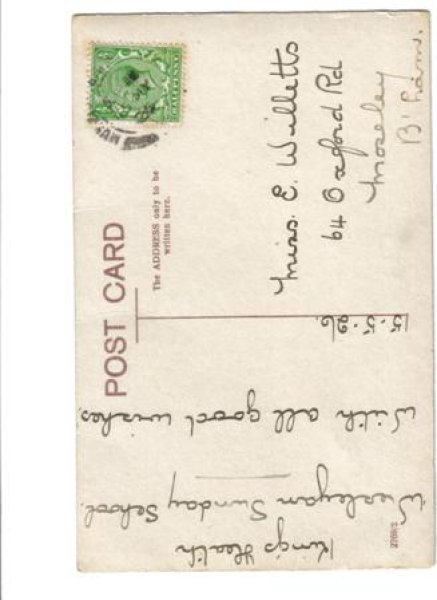 POST CARD
The ADDRESS only to be
written here.
King's Heath
Wesleyan Sunday School.
With all good wishes.
15.5.26.
Miss. E. Willetts
64 Oxford Rd
Moseley
B'ham.
HALFPENNY